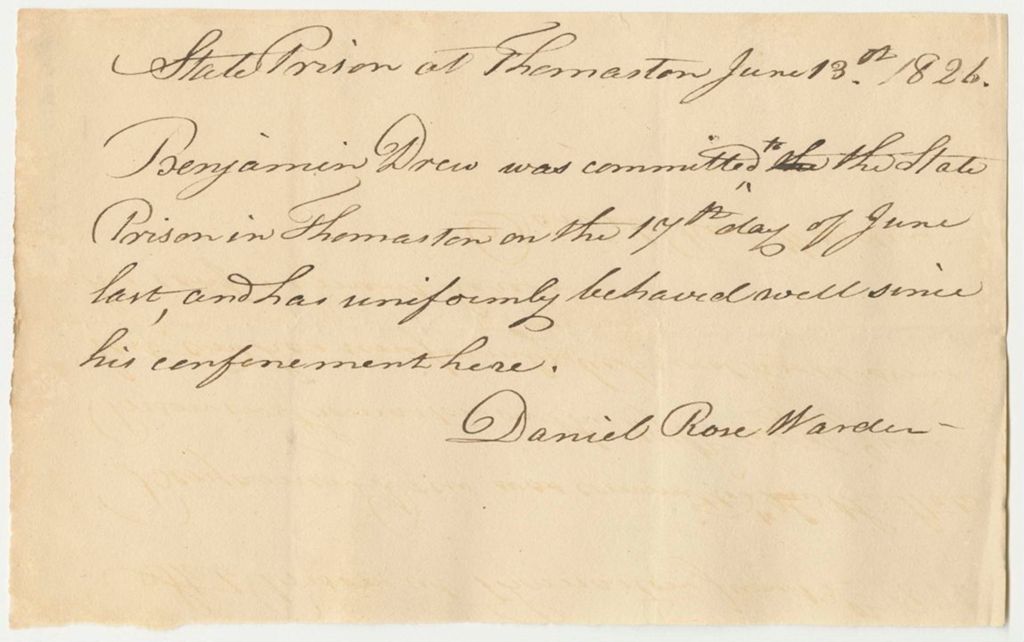 State Prison at Thomaston June 13.th 1826.
Benjamin Drew was committed to the the State
Prison in Thomaston on the 17th day of June
last, and has uniformly behaved well since
his confinement here.
Daniel Rose Warden